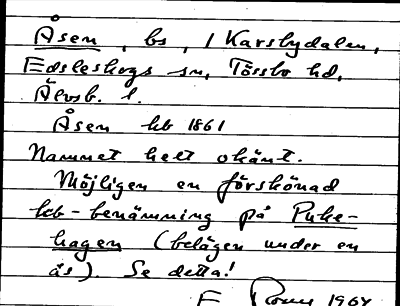 Åsen, bs, i Karsbydalen,
Edsleskogs sn, Tössbo hd,
Älvsb. l.
Åsen kb 1861
Namnet helt okänt.
Möjligen en förskönad
kb-benämning på Puke-
hagen (belägen under en
ås). Se detta!
F 1964